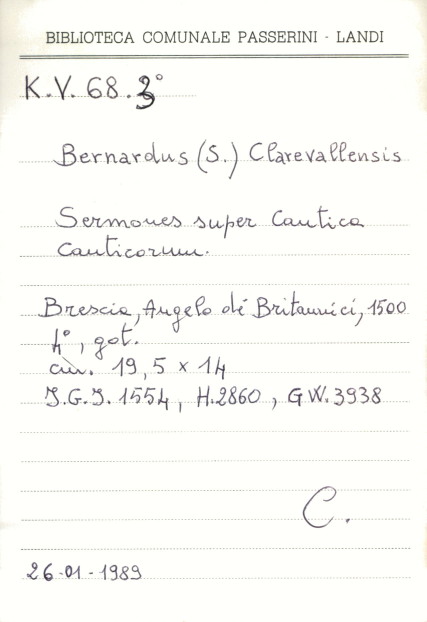 BIBLIOTECA COMUNALE PASSERINI - LANDI
K.V. 68.3°
Bernardus (S.) Clarevallensis
Sermones super Cantica
Canticorum.
Brescia, Angelo de' Britannici, 1500
4°, got.
cm. 19,5 x 14
I.G.I. 1554, H.2860, G.W. 3938
C.
26-01-1989